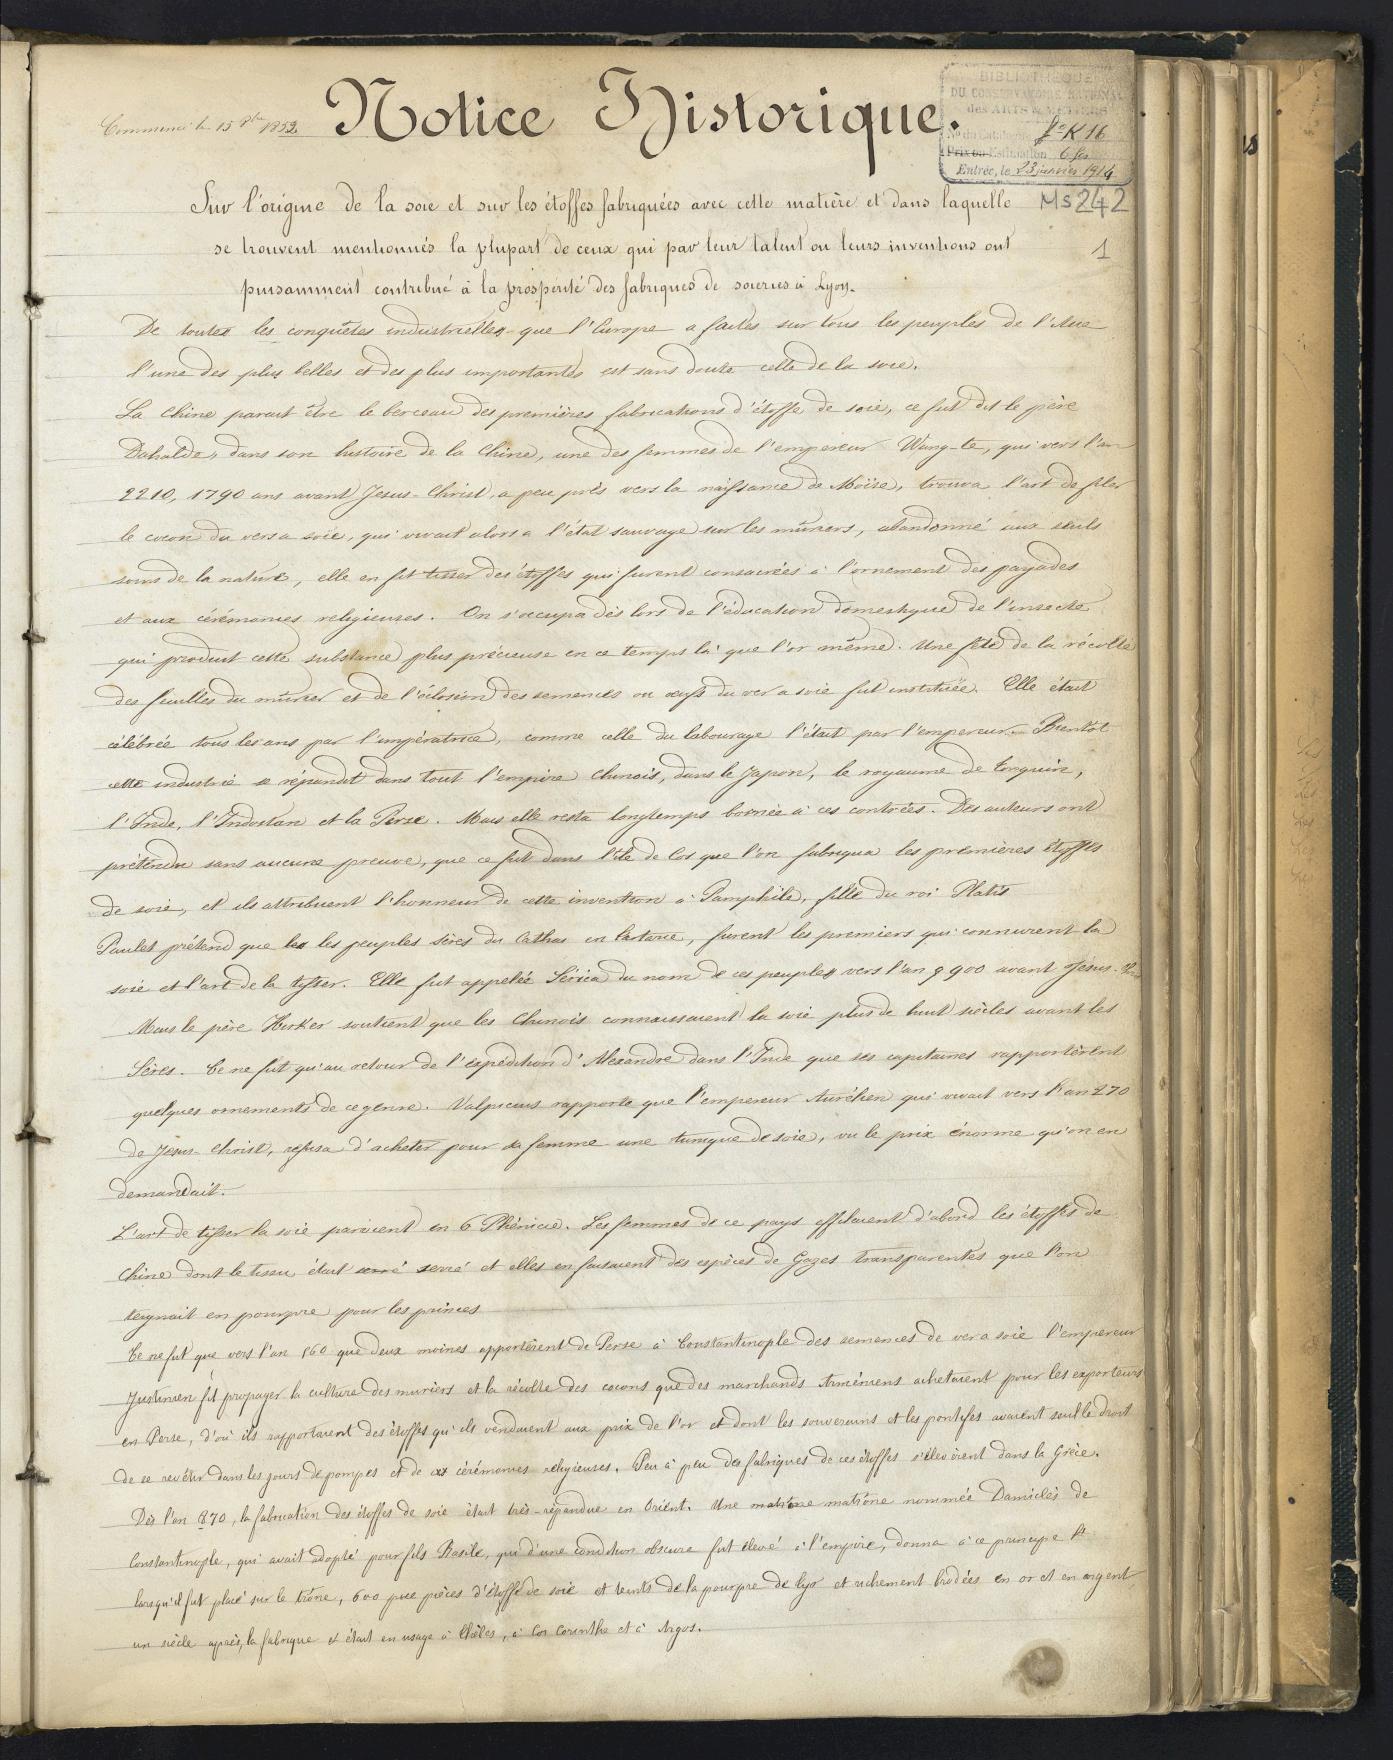 Commencé le 15 8bre 1852
Notice Historique.
BIBLIOTHÈQUE
DU CONSERVATOIRE NATIONAL
des ARTS & MÉTIERS
No du Catalogue fo K 16
Prix ou Estimation 6 frs
Entrée, le 23 janvier 1914
Ms 242
1
Sur l'origine de la soie et sur les étoffes fabriquées avec cette matière et dans laquelle
se trouvent mentionnés la plupart de ceux qui par leur talent ou leurs inventions ont
puisamment contribué à la prospérité des fabriques de soieries à Lyon.
De toutes les conquêtes industrielles que l'Europe a faites sur tous les peuples de l'Asie
l'une des plus belles et des plus importantes est sans doute celle de la soie.
La Chine parait être le berceau des premières fabrications d'étoffe de soie, ce fut dit le père
Duhalde, dans son histoire de la Chine, une des femmes de l'empereur Wang-te, qui vers l'an
2210, 1790 ans avant Jesus-Christ, a peu près vers la naissance de Moïse, trouva l'art de filer
le cocon du vers a soie, qui vivait alors a l'état sauvage sur les mûriers, abandonné aux seuls
soins de la nature, elle en fit tisser des étoffes qui furent consacrées à l'ornement des pagodes
et aux cérémonies religieuses. On s'occupa dès lors de l'éducation domestique de l'insecte
qui produit cette substance plus précieuse en ce temps là que l'or même. Une fête de la récolte
des feuilles du mûrier et de l'éclosion des semences ou œufs du ver a soie fut instituée. Elle était
célébrée tous les ans par l'impératrice, comme celle du labourage l'était par l'empereur. Bientôt
cette industrie se répandit dans tout l'empire chinois, dans le Japon, le royaume de Tonquin,
l'Inde, l'Indostan et la Perse. Mais elle resta longtemps bornée à ces contrées. Des auteurs ont
prétendu sans aucune preuve, que ce fut dans l'île de Cos que l'on fabriqua les premières étoffes
de soie, et ils attribuent l'honneur de cette invention à Pamphile, fille du roi Platis
Paulet prétend que les les peuples sères du Cathas en tartarie, furent les premiers qui connurent la
soie et l'art de la tisser. Elle fut appelée Sérica du nom de ces peuples vers l'an 900 avant Jésus-
Mais le père Kirker soutient que les Chinois connaissaient la soie plus de huit siècles avant les
Sères. Ce ne fut qu'au retour de l'expédition d'Alexandre dans l'Inde que ses capitaines rapportèrent
quelques ornements de ce genre. Valpicus rapporte que l'empereur Aurélien qui vivait vers l'an 270
de Jesus-Christ, refusa d'acheter pour sa femme une tunique de soie, vu le prix énorme qu'on en
demandait.
L'art de tisser la soie parvient en 6 Phénicie. Les femmes de ce pays effilaient d'abord les étoffes de
Chine dont le tissu était serré serré et elles en faisaient des espèces de Gazes transparentes que l'on
teignait en pourpre pour les princes
Ce ne fut que vers l'an 560 que deux moines apportèrent de Perse à Constantinople des semences de ver a soie l'empereur
Justinien fit propager la culture des muriers et la récolte des cocons que des marchands Arméniens achetaient pour les exporteurs
en Perse, d'où ils rapportaient des étoffes qu'ils vendaient aux prix de l'or et dont les souverains et les pontifes avaient seul le droit
de se revêtir dans les jours de pompes et de cérémonies religieuses. Peu à peu des fabriques de ces étoffes s'élevèrent dans la Grèce.
Dès l'an 870, la fabrication des étoffes de soie était très-répandue en Orient. Une matrône matrône nommée Damiclès de
Constantinople, qui avait adopté pour fils Basile, qui d'une condition obscure fut élevé à l'empire, donna à ce principe
lorsqu'il fut placé sur le trône, 600 pièces d'étoffe de soie et teints de la pourpre de Tyr et richement brodées en or et en argent
un siècle après, la fabrique était en usage à Thèbes, à Corinthe et à Argos.